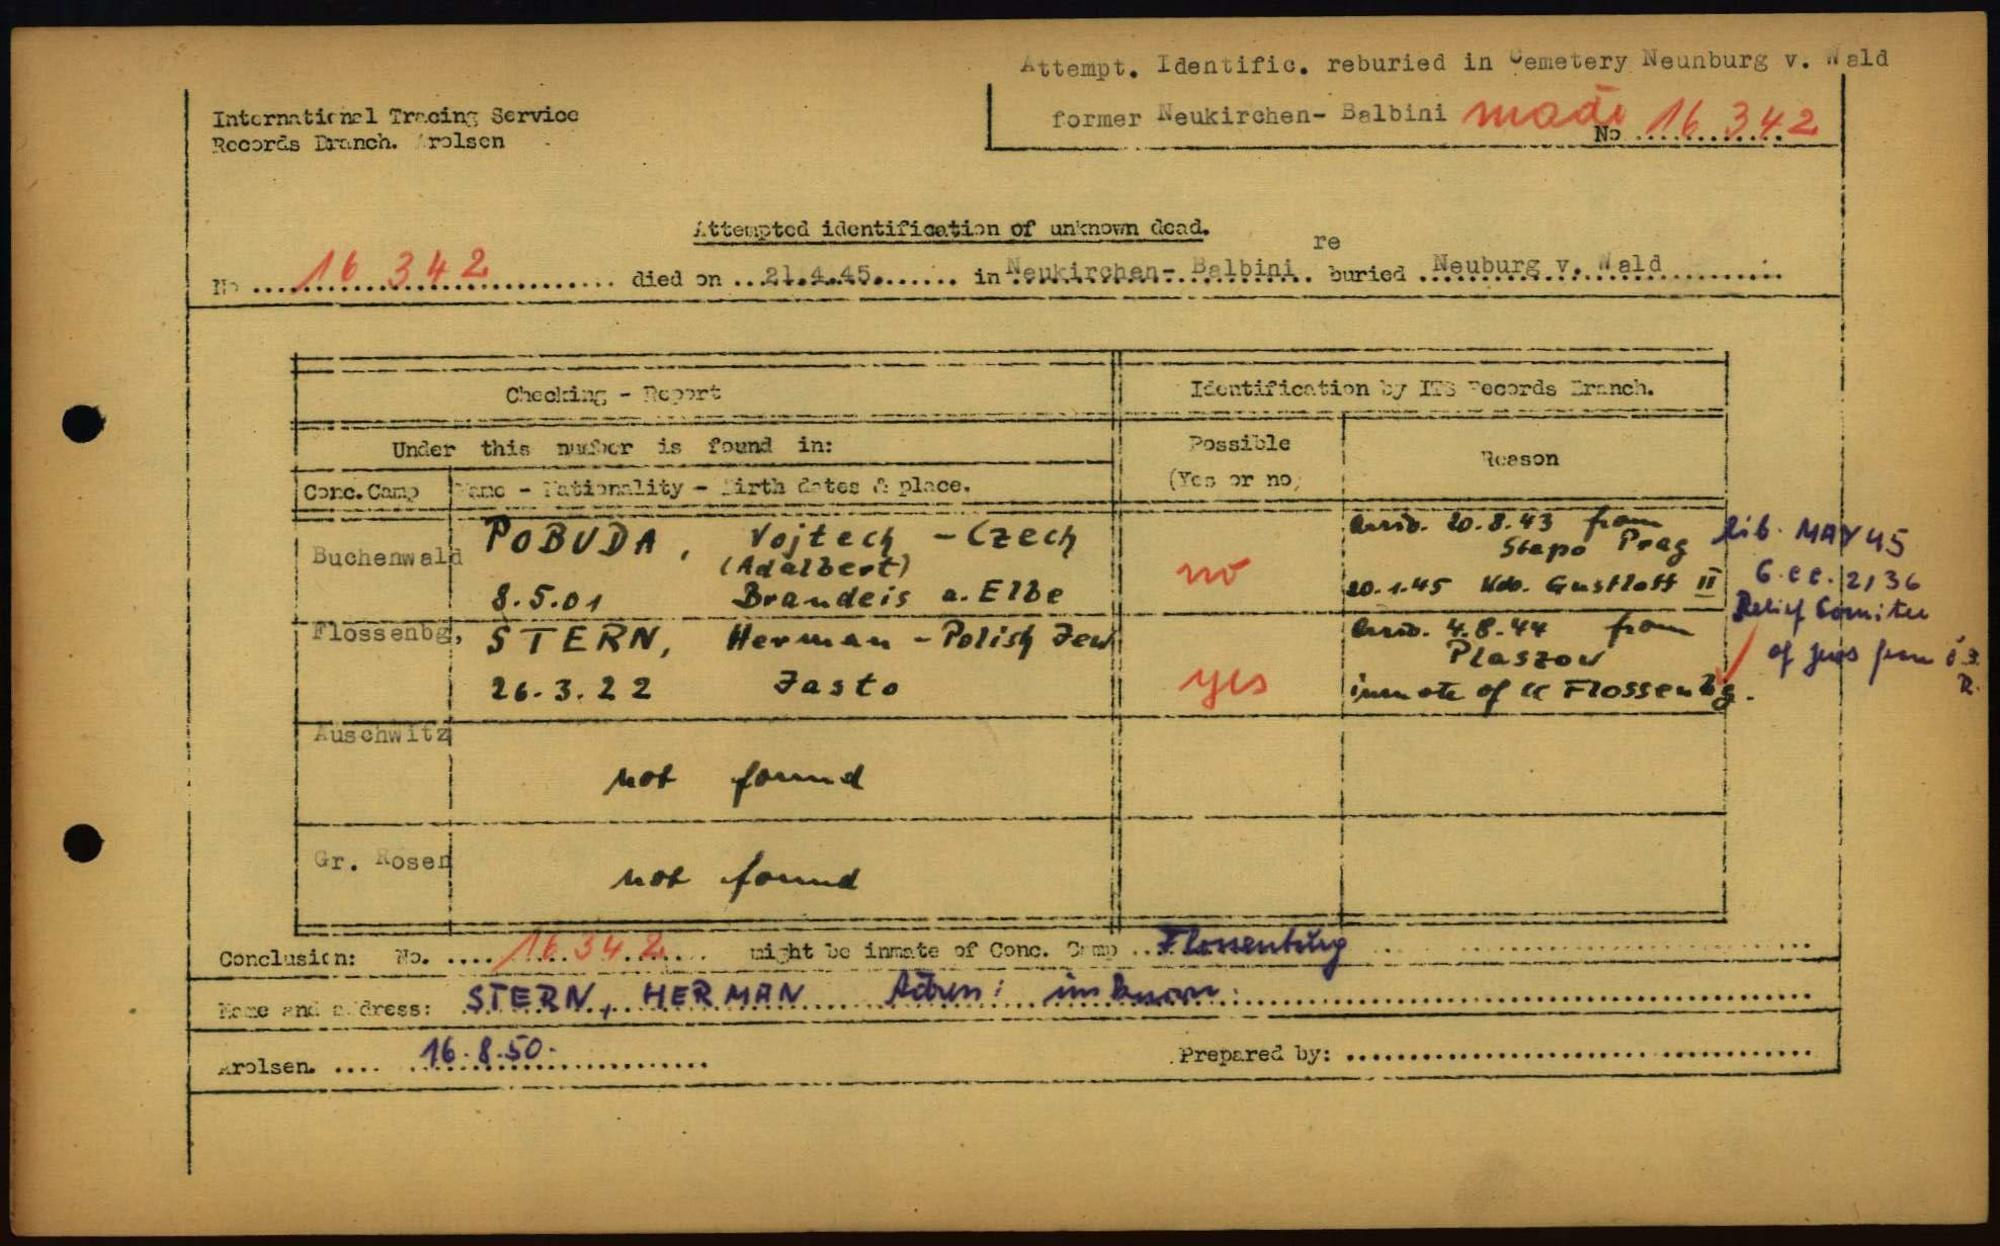 Attempt. Identific. reburied in Cemetery Neunburg v. Wald
former Neukirchen- Balbini made No 16 342
International Tracing Service
Records Branch. Arolsen
Attempted identification of unknown dead.
No 16 342 died on 21.4.45. in Neukirchen- Balbini re buried Neuburg v. Wald
Checking - Report
Identification by ITS Records Branch.
Under this number is found in:
Possible (Yes or no)
Reason
Conc. Camp
Name - Nationality - Birth dates & place.
Buchenwald
POBUDA, Vojtech - Czech
(Adalbert)
8.5.01 Brandeis a. Elbe
no
20.8.43 from
Stapo Prag
20.1.45 Kdo. Gustloff II
lib. MAY 45
G.CC. 2/36
Relief Comitee
of jews from
Flossenbg,
STERN, Herman - Polish Jew
26.3.22 Jasto
yes
4.8.44 from
Plaszow
inmate of CC Flossenbg.
Auschwitz
not found
Gr. Rosen
not found
Conclusion: No. 16 342 might be inmate of Conc. Camp Flossenbürg
Name and address: STERN, HERMAN
Arolsen. 16.8.50.
Prepared by: